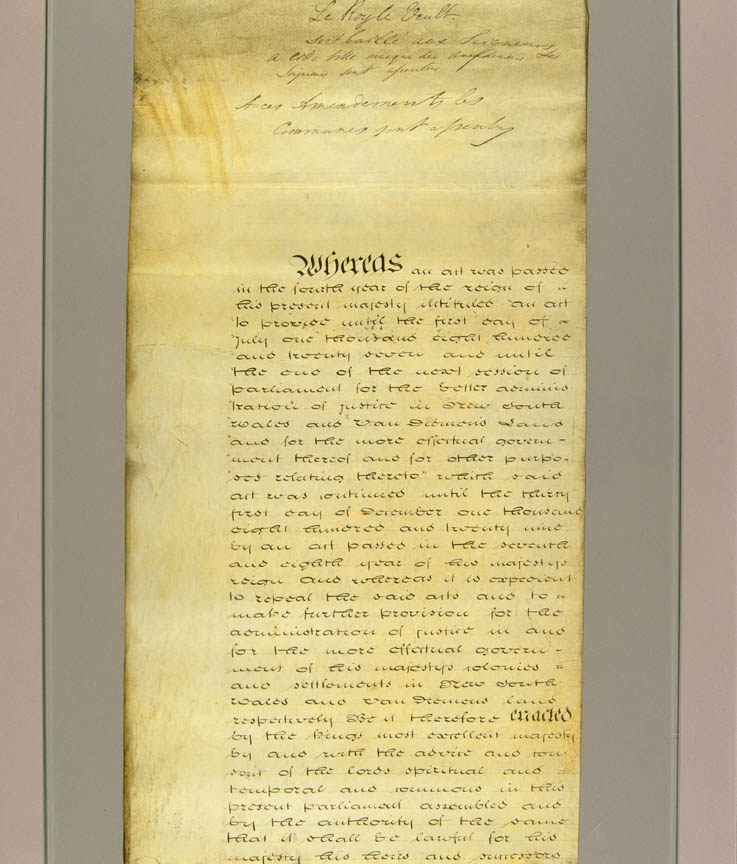 Le Roy le Veult.
soit baillé aux Seigneurs
a cette bille avecque des amendemens les
Seigneurs sont assentus
A ces Amendements les
Communes sont assentus
Whereas an act was passed
in the fourth year of the reign of =
his present majesty intituled "an act
"to provide until the first day of =
"July one thousand eight hundred
"and twenty seven and until
"the end of the next session of
"parliament for the better adminis-
"tration of justice in New South
"Wales and Van Diemen's Land
"and for the more effectual govern-
"ment thereof and for other purpo-
"ses relating thereto" which said
act was continued until the thirty
first day of December one thousand
eight hundred and twenty nine
by an act passed in the seventh
and eighth year of his majestys
reign And whereas it is expedient
to repeal the said acts and to =
make further provision for the
administration of justice in and
for the more effectual govern-
ment of his majestys colonies =
and settlements in New South
Wales and Van Diemens land
respectively Be it therefore enacted
by the Kings most excellent majesty
by and with the advice and con-
sent of the lords spiritual and =
temporal and commons in this
present parliament assembled and
by the authority of the same
that it shall be lawful for his
majesty his heirs and successors